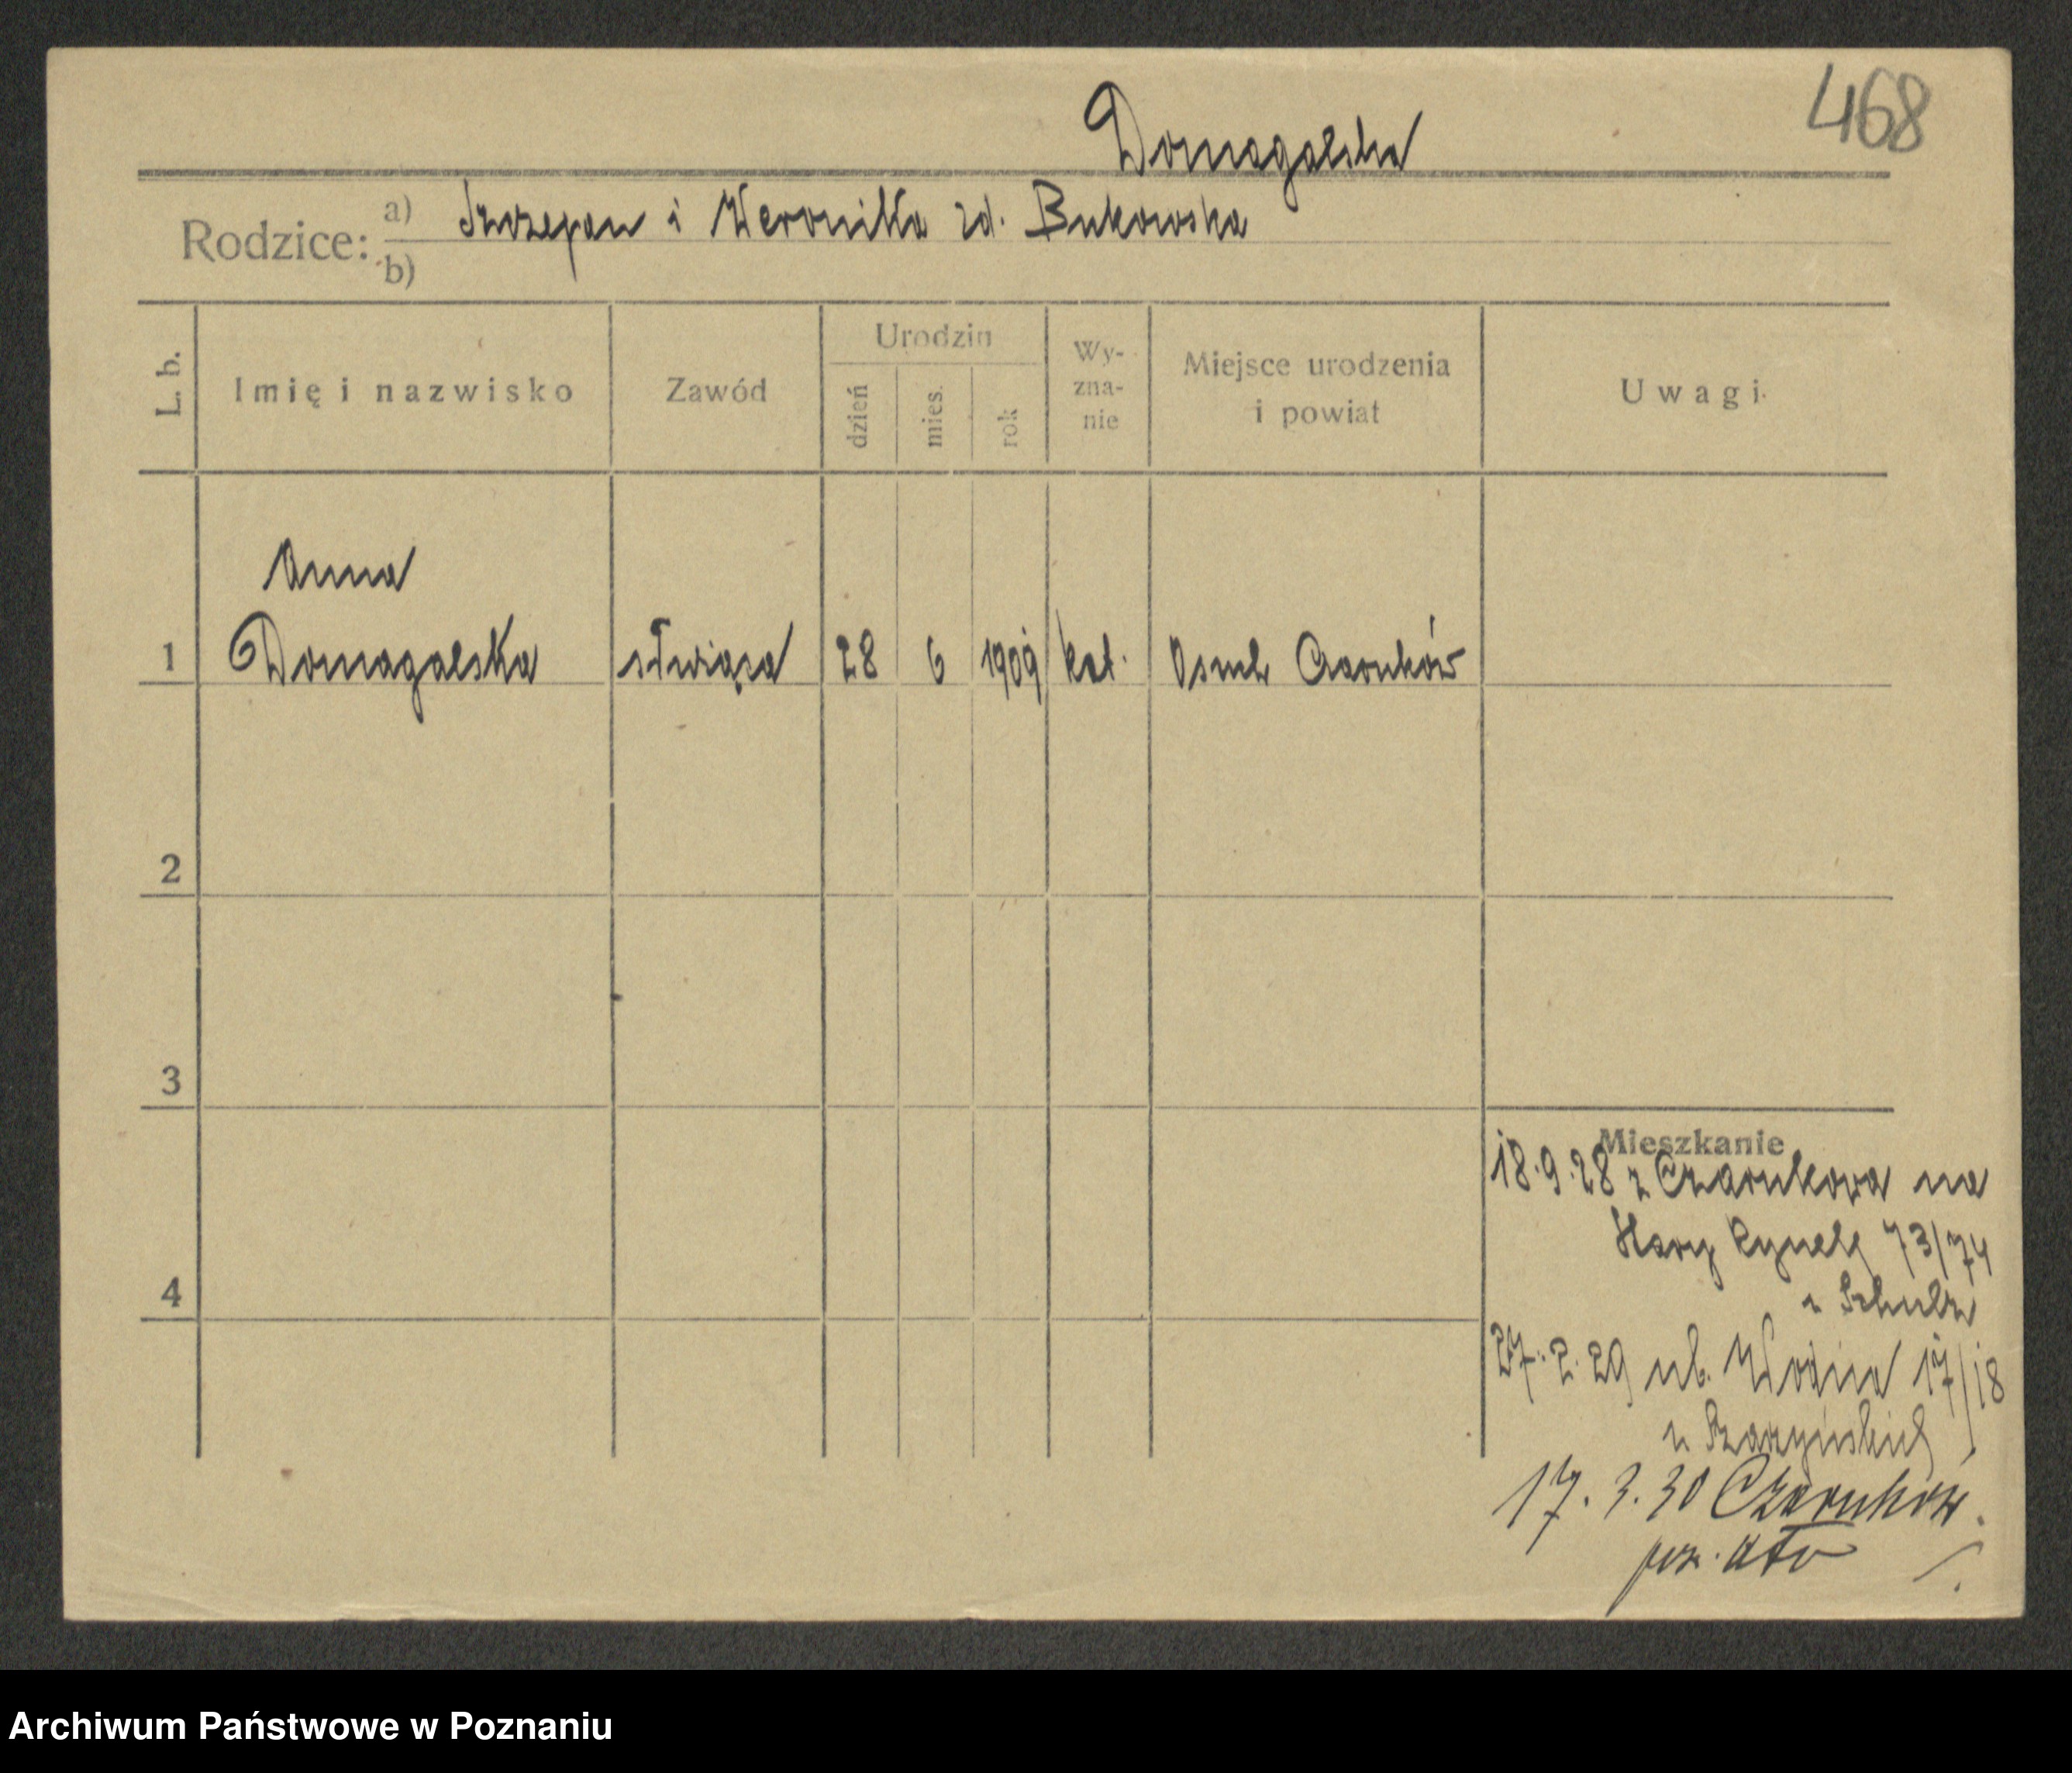 468
Domagalska
Rodzice: a) Szczepan i Weronika zd. Bukowska
b)
L. b. Imię i nazwisko Zawód Urodzin dzień mies. rok Wy-zna-nie Miejsce urodzenia i powiat Uwagi
Anna
1 Domagalska służąca 28 6 1909 kat. Czarnków
2
3
4
Mieszkanie
18.9.28 z Czarnkowa na
Stary Rynek 73/74
u Schulz
27.2.29 ul. Wodna 17/18
u
17.3.30 Czarnków.
Archiwum Państwowe w Poznaniu